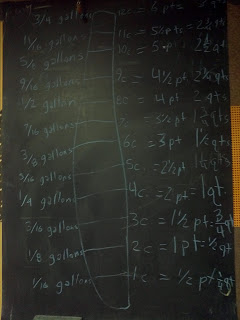 3/4 gallons 12c = 6 pts
11/16 gallons 11c = 5½ pts
5/8 gallons 10c = 5 2½ qts
9/16 gallons 9c = 4½ pt 2¼ qts
1/2 gallons 8c = 4 pt 2 qts
7/16 gallons
3/8 gallons 6c = 3 pt 1½ qts
5/16 gallons 5c = 2½ pt
1/4 gallons 4c = 2pt = 1qt
3/16 gallons 3c = 1½ pt = 3/4 qt
1/8 gallons 2c = 1pt = ½ qt
1/16 gallons 1c = ½ pt ¼ qt